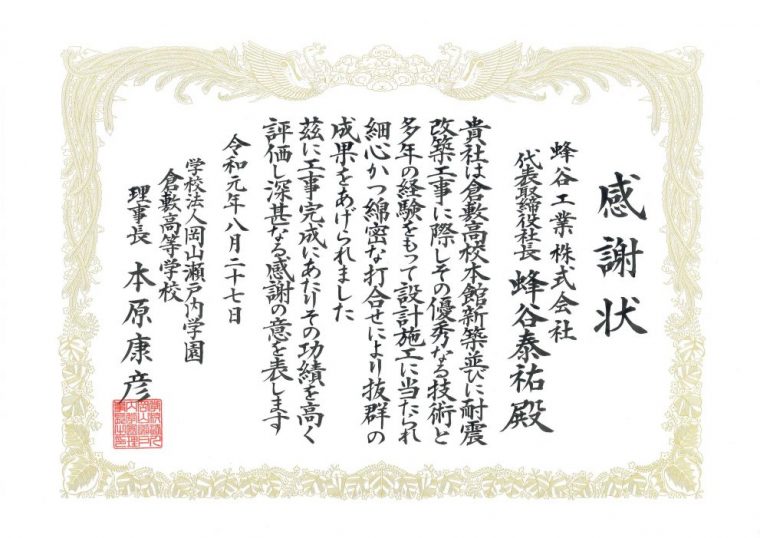 感謝状
蜂谷工業株式会社
代表取締役社長 蜂谷泰祐殿
貴社は倉敷高校本館新築並びに耐震
改築工事に際しその優秀なる技術と
多年の経験をもって設計施工に当たられ
細心かつ綿密な打合せにより抜群の
成果をあげられました
茲に工事完成にあたりその功績を高く
評価し深甚なる感謝の意を表します
令和元年八月二十七日
学校法人岡山瀬戸内学園
倉敷高等学校
理事長 本原康彦